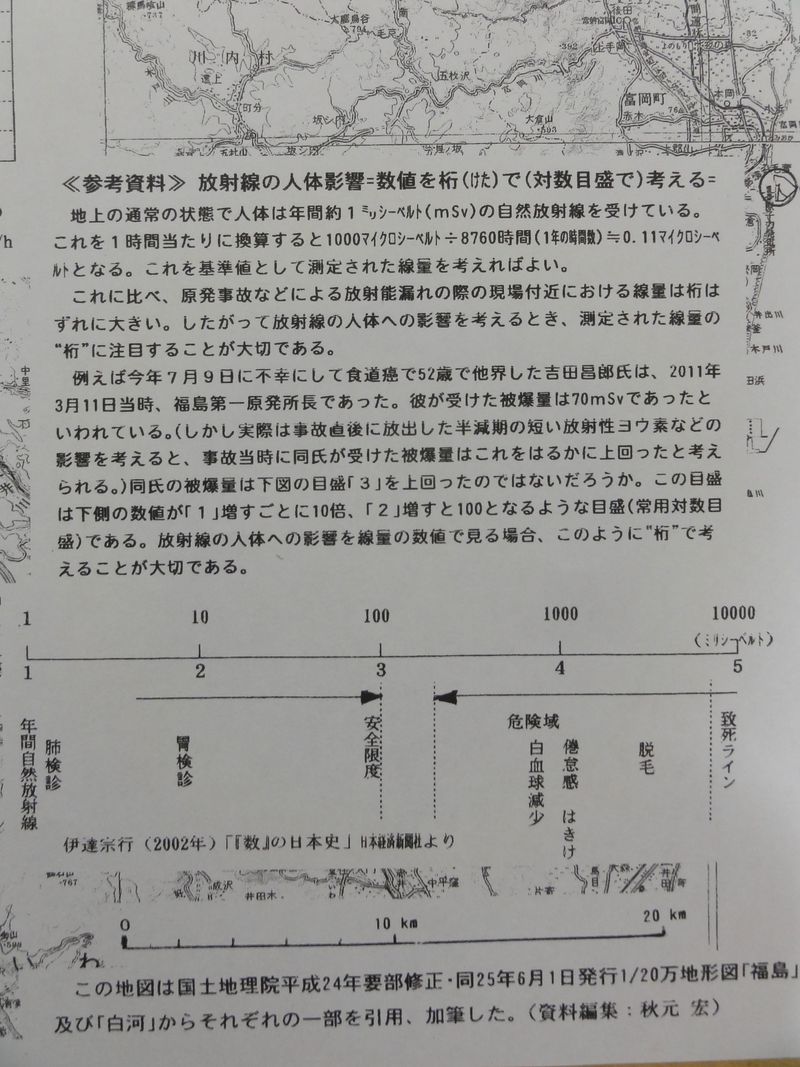 川内村
大鷹鳥谷
毛戸
五枚沢
町分
坂シ内
大倉山
富岡町
本岡
赤木
上手岡
≪参考資料≫ 放射線の人体影響=数値を桁(けた)で(対数目盛で)考える=
地上の通常の状態で人体は年間約１ミリシーベルト(mSv)の自然放射線を受けている。
これを１時間当たりに換算すると1000マイクロシーベルト÷8760時間(1年の時間数)≒0.11マイクロシーベ
ルトとなる。これを基準値として測定された線量を考えればよい。
これに比べ、原発事故などによる放射能漏れの際の現場付近における線量は桁は
ずれに大きい。したがって放射線の人体への影響を考えるとき、測定された線量の
“桁”に注目することが大切である。
例えば今年７月９日に不幸にして食道癌で52歳で他界した吉田昌郎氏は、2011年
3月11日当時、福島第一原発所長であった。彼が受けた被爆量は70mSvであったと
いわれている。(しかし実際は事故直後に放出した半減期の短い放射性ヨウ素などの
影響を考えると、事故当時に同氏が受けた被爆量はこれをはるかに上回ったと考え
られる。)同氏の被爆量は下図の目盛「３」を上回ったのではないだろうか。この目盛
は下側の数値が「１」増すごとに10倍、「２」増すと100となるような目盛(常用対数目
盛)である。放射線の人体への影響を線量の数値で見る場合、このように“桁”で考
えることが大切である。
井出川
木戸川
1 10 100 1000 10000
(ミリシーベルト)
1 2 3 4 5
年間自然放射線
肺検診
胃検診
安全限度
危険域
白血球減少
倦怠感 はきけ
脱毛
致死ライン
伊達宗行（2002年）「『数』の日本史」日本経済新聞社より
井田木
中平窪
片寄
0 10 km 20 km
いわ
この地図は国土地理院平成24年要部修正・同25年6月1日発行1/20万地形図「福島」
及び「白河」からそれぞれの一部を引用、加筆した。（資料編集：秋元 宏）